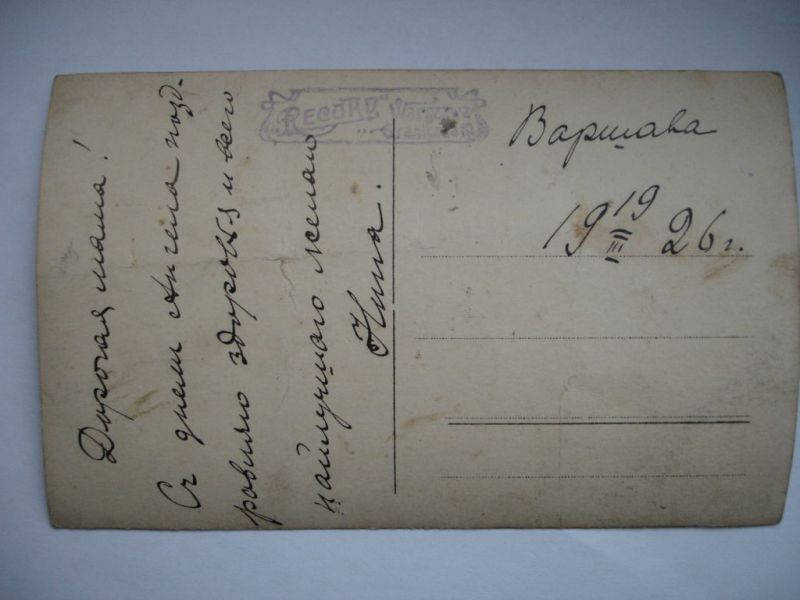 Дорогая мама!
Съ днем Ангела позд-
ровляю здоровья и всего
найлучшаго желаю
Нина.
„RECORD”
Варшава
19 19/III 26 г.